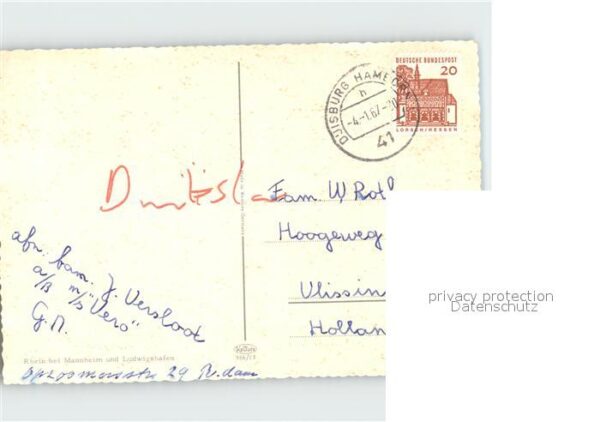 DEUTSCHE BUNDESPOST
20
LORSCH/HESSEN
DUISBURG HAMBORN
h
-4.-1.67.-20
41
Fam. W. Rot
Hoogeweg
Vlissin
Hollan
afn. bam. J. Versloot
a/B m/s "Vero"
G.M.
Rhein bei Mannheim und Ludwigshafen
29 R.dam
privacy protection
Datenschutz